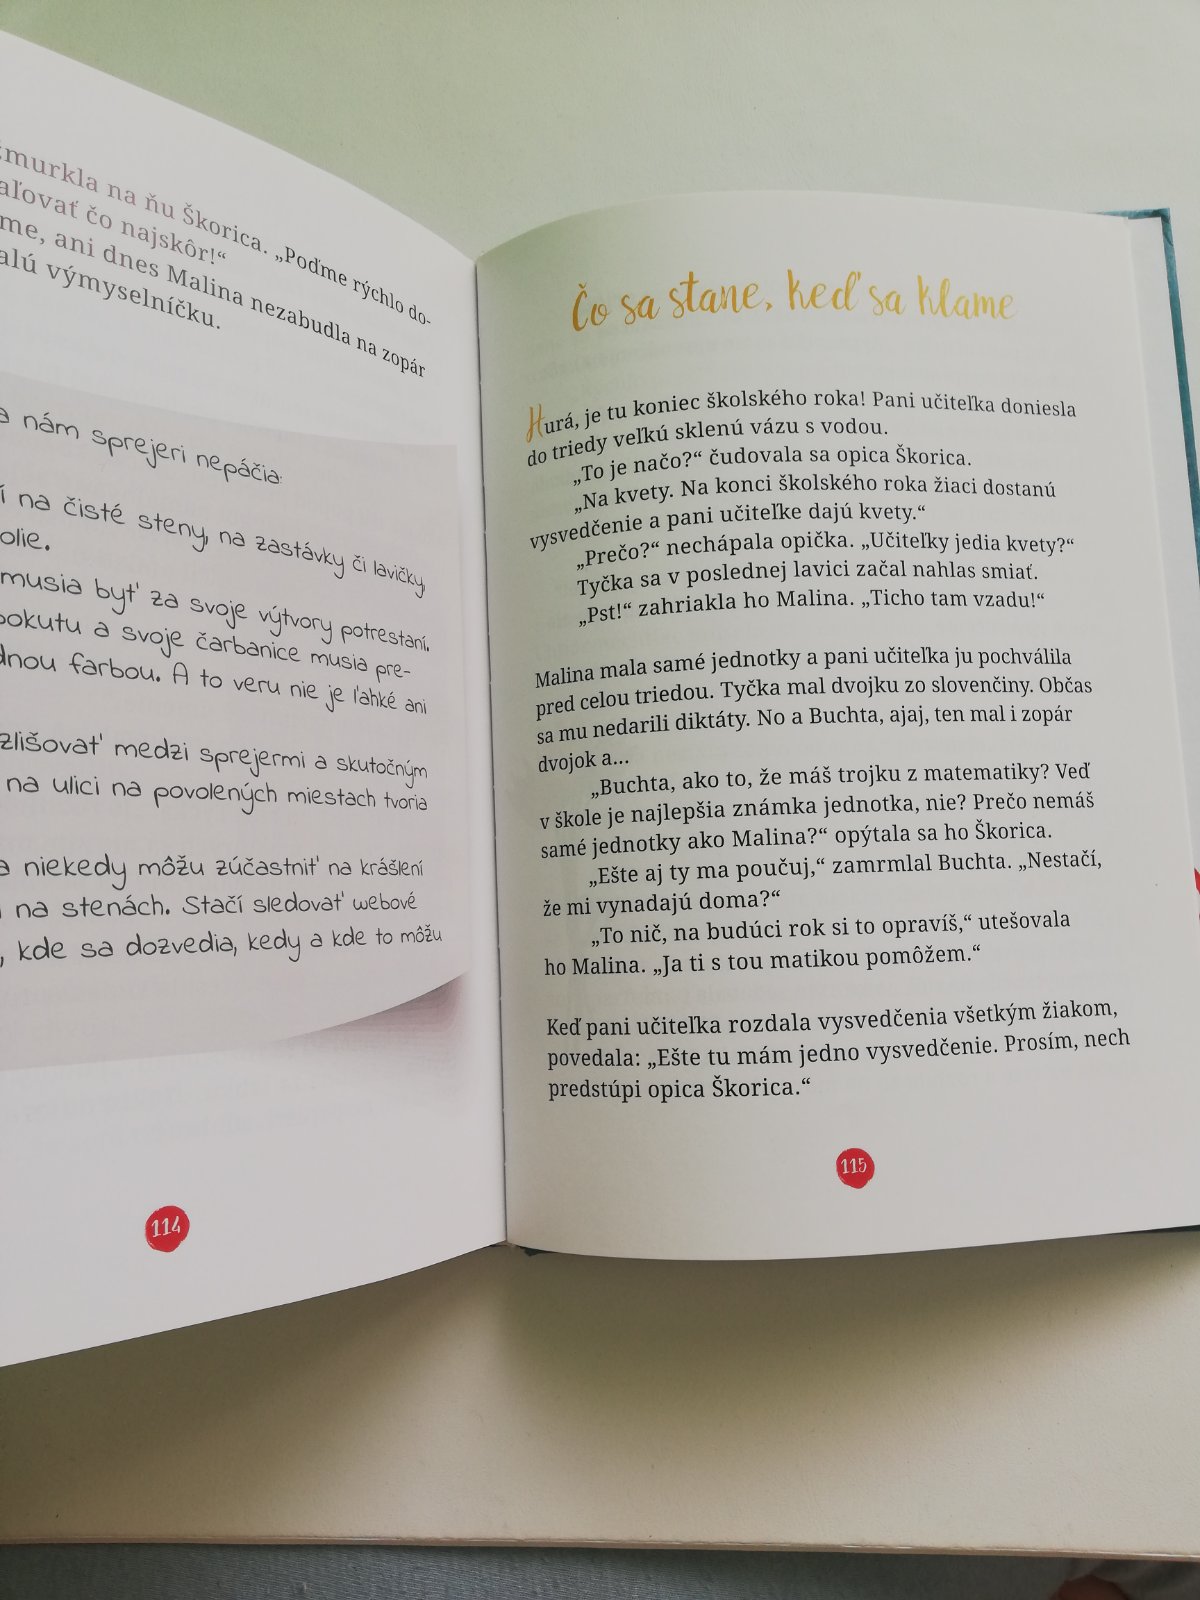 na ňu Škorica. „Poďme rýchlo do-
čo najskôr!“
ani dnes Malina nezabudla na zopár
výmyselníčku.
nám sprejeri nepáčia:
na čisté steny, na zastávky či lavičky,
musia byť za svoje výtvory potrestaní.
pokutu a svoje čarbanice musia pre-
farbou. A to veru nie je ľahké ani
medzi sprejermi a skutočným
na ulici na povolených miestach tvoria
niekedy môžu zúčastniť na krášlení
na stenách. Stačí sledovať webové
kde sa dozvedia, kedy a kde to môžu
114
Čo sa stane, keď sa klame
Hurá, je tu koniec školského roka! Pani učiteľka doniesla
do triedy veľkú sklenú vázu s vodou.
„To je načo?“ čudovala sa opica Škorica.
„Na kvety. Na konci školského roka žiaci dostanú
vysvedčenie a pani učiteľke dajú kvety.“
„Prečo?“ nechápala opička. „Učiteľky jedia kvety?“
Tyčka sa v poslednej lavici začal nahlas smiať.
„Pst!“ zahriakla ho Malina. „Ticho tam vzadu!“
Malina mala samé jednotky a pani učiteľka ju pochválila
pred celou triedou. Tyčka mal dvojku zo slovenčiny. Občas
sa mu nedarili diktáty. No a Buchta, ajaj, ten mal i zopár
dvojok a...
„Buchta, ako to, že máš trojku z matematiky? Veď
v škole je najlepšia známka jednotka, nie? Prečo nemáš
samé jednotky ako Malina?“ opýtala sa ho Škorica.
„Ešte aj ty ma poučuj,“ zamrmlal Buchta. „Nestačí,
že mi vynadajú doma?“
„To nič, na budúci rok si to opravíš,“ utešovala
ho Malina. „Ja ti s tou matikou pomôžem.“
Keď pani učiteľka rozdala vysvedčenia všetkým žiakom,
povedala: „Ešte tu mám jedno vysvedčenie. Prosím, nech
predstúpi opica Škorica.“
115